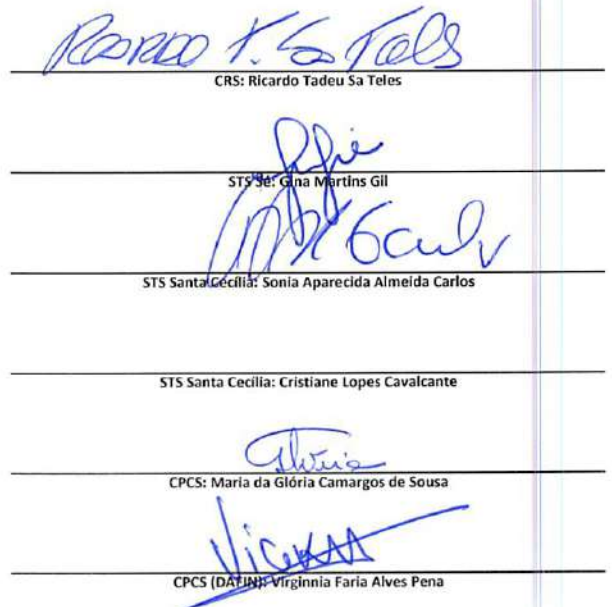 CRS: Ricardo Tadeu Sa Teles
STS Sé: Gina Martins Gil
STS Santa Cecília: Sonia Aparecida Almeida Carlos
STS Santa Cecília: Cristiane Lopes Cavalcante
Glória
CPCS: Maria da Glória Camargos de Sousa
CPCS (DAFIN): Virginnia Faria Alves Pena